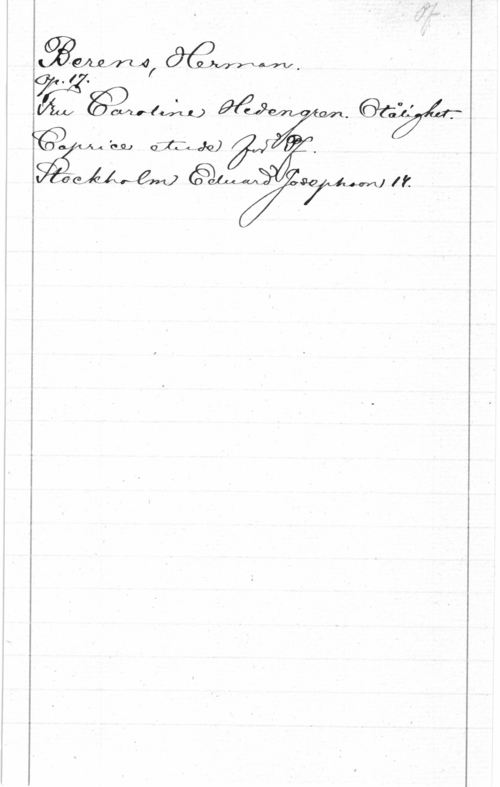 Pf.
Berens, Herman.
Op. 17.
Fru Caroline Hedengren. Otålighet.
Caprice etude för Pf.
Stockholm Eduard Josephson 14.